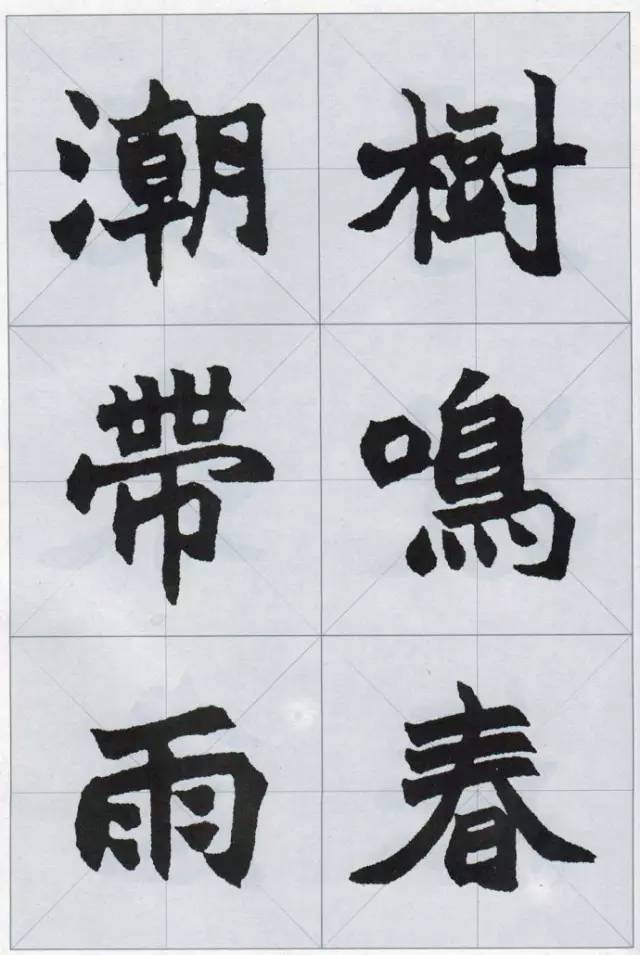 樹鳴春
潮帶雨